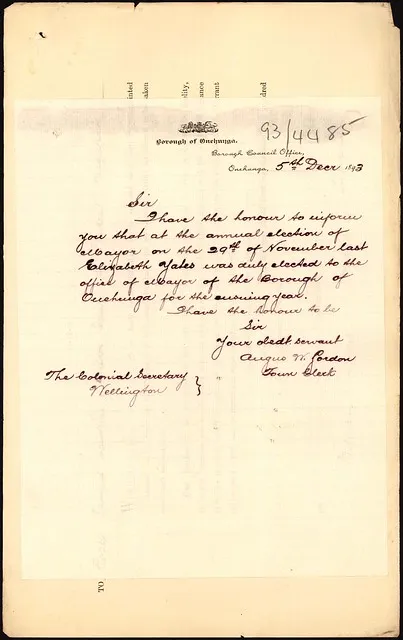 inted
aken
olity,
ance
rrant
dred
93/4485
Borough of Onehunga.
Borough Council Office,
Onehunga, 5th Decr 1893
Sir
I have the honour to inform
you that at the annual election of
Mayor on the 29th of November last
Elizabeth Yates was duly elected to the
office of Mayor of the Borough of
Onehunga for the ensuing year.
I have the honour to be
Sir
Your obedt servant
Angus W. Gordon
Town Clerk
The Colonial Secretary
Wellington
TO